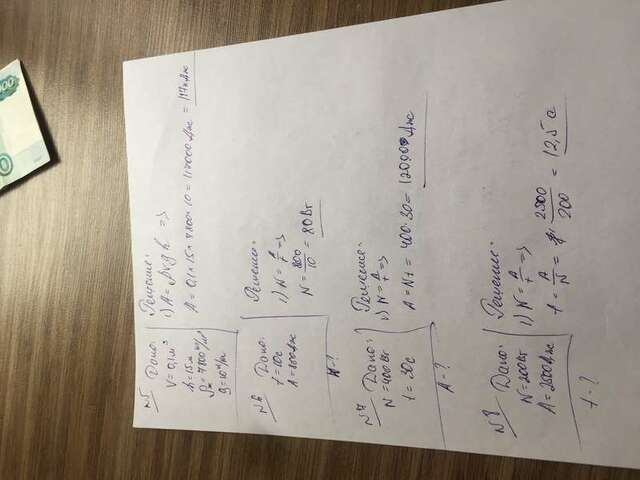 №5 Дано:
V = 0,1 м³
h = 15 м
ρж = 7800 кг/м³
g = 10 Н/кг
Решение:
1) A = ρVgh =>
A = 0,1 * 15 * 7800 * 10 = 117000 Дж = 117 кДж
№6 Дано:
t = 10 с
A = 800 Дж
N - ?
Решение:
1) N = A/t =>
N = 800/10 = 80 Вт
№7 Дано:
N = 400 Вт
t = 30 с
A - ?
Решение:
1) N = A/t =>
A = Nt = 400 · 30 = 12000 Дж
№8 Дано:
N = 200 Вт
A = 2500 Дж
t - ?
Решение:
1) N = A/t =>
t = A/N = 2500/200 = 12,5 с